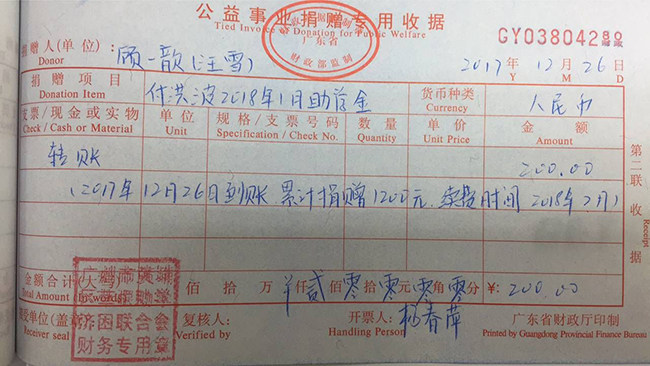 公益事业捐赠专用收据
Tied Invoice of Donation for Public Welfare
广东省
财政部监制
GY03804280
捐赠人(单位): 顾一歆(汪雪) 2017年12月26日
Donor Y M D
捐赠项目 付洪波2018年1月助学金 货币种类 人民币
Donation Item Currency
支票/现金或实物 单位 规格/支票号码 数量 单价 金额
Check / Cash or Material Unit Specification / Check No. Quantity Unit Price Amount
转账 200.00
(2017年12月26日到账、累计捐赠1200元、续费时间2018年2月)
第二联 收据
Receipt
金额合计(大写) 佰拾万¥仟贰佰零拾零元零角零分 ¥: 200.00
Total Amount (In words)
接受单位(盖章) 复核人: 开票人: 杨春萍 广东省财政厅印制
Receiver seal Verified by Handling Person Printed by Guangdong Provincial Finance Bureau
济困联合会
财务专用章